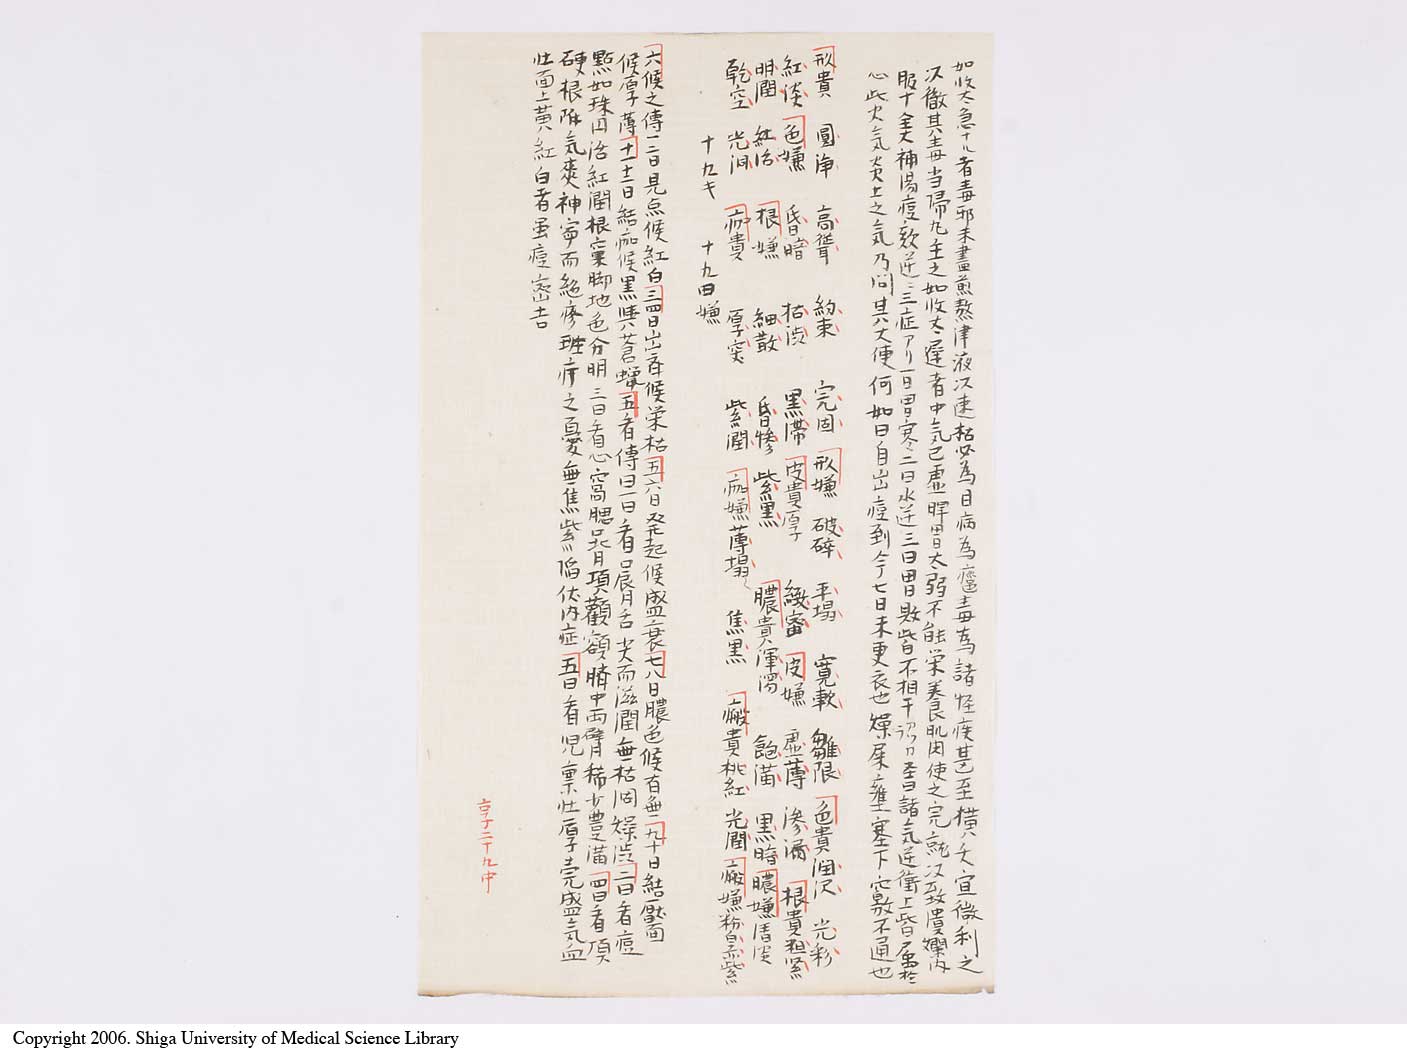 如收太急十八者毒邪未盡煎熬津液以速枯必為目病為癰毒為諸怪疾甚至橫夭宜微利之
以徹其毒当帰丸主之如收太遅者中気已虚脾胃太弱不能栄養肌肉使之完就以致潰爛内
服十全大補湯痘欬逆三症アリ一曰胃寒二曰水逆三曰胃敗皆不相干諸気逆衝上皆属於
心此火気炎上之気乃问其大便何如曰自出痘到今七日未更衣也燥屎壅塞下竅不通也
形貴 圓净 高聳 約束 完固 形嫌 破碎 平塌 寛軟 皺限 色貴潤沢 光彩
紅淡 色嫌 昏暗 枯渋 黒滞 皮貴厚 緻密 皮嫌 虚薄 滲漏 根貴粗緊
明潤 紅活 根嫌 細散 昏惨 紫黒 膿貴渾濁 飽満 黒暗 膿嫌清淡
乾空 光润 痂貴 厚実 紫潤 痂嫌薄塌 焦黒 瘢貴桃紅 光潤 瘢嫌粉白赤紫
十九貴 十九曰嫌
六候之傳一二日見点候紅白三四日出斉候栄枯五六日発起候盛衰七八日膿色候有無九十日結靨
候厚薄十一十二日結痂候黒與蒼蠟五看傳曰一日看唇舌尖而滋潤無枯涸燥渋二日看痘
點如珠円活紅潤根窠脚地色分明三日看心窩腮背項顴額臍中両臂稀少豊満四日看頂
硬根附気爽神寧而絶瘮斑疹之憂無焦紫陥伏内症五日看児稟壮厚完盛気血
壮面上黄紅白者虽痘密吉
亨二十九中